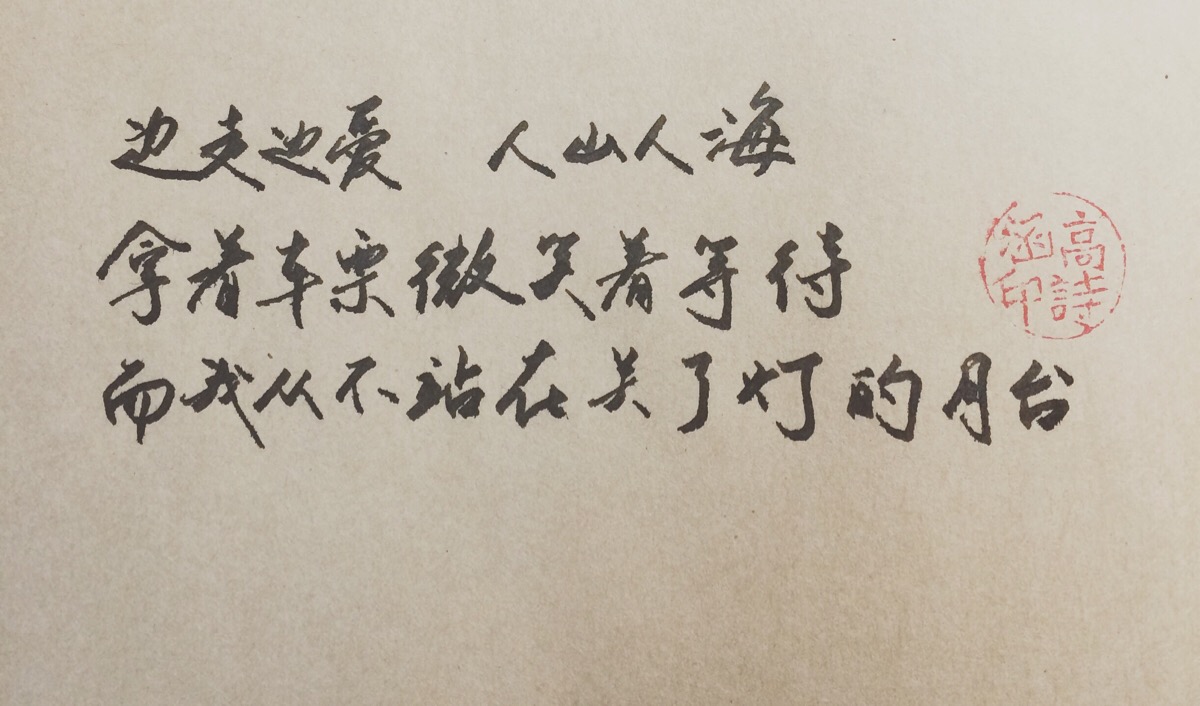 边走边愛 人山人海
拿着车票微笑着等待
而我从不站在关了灯的月台
高詩涵印